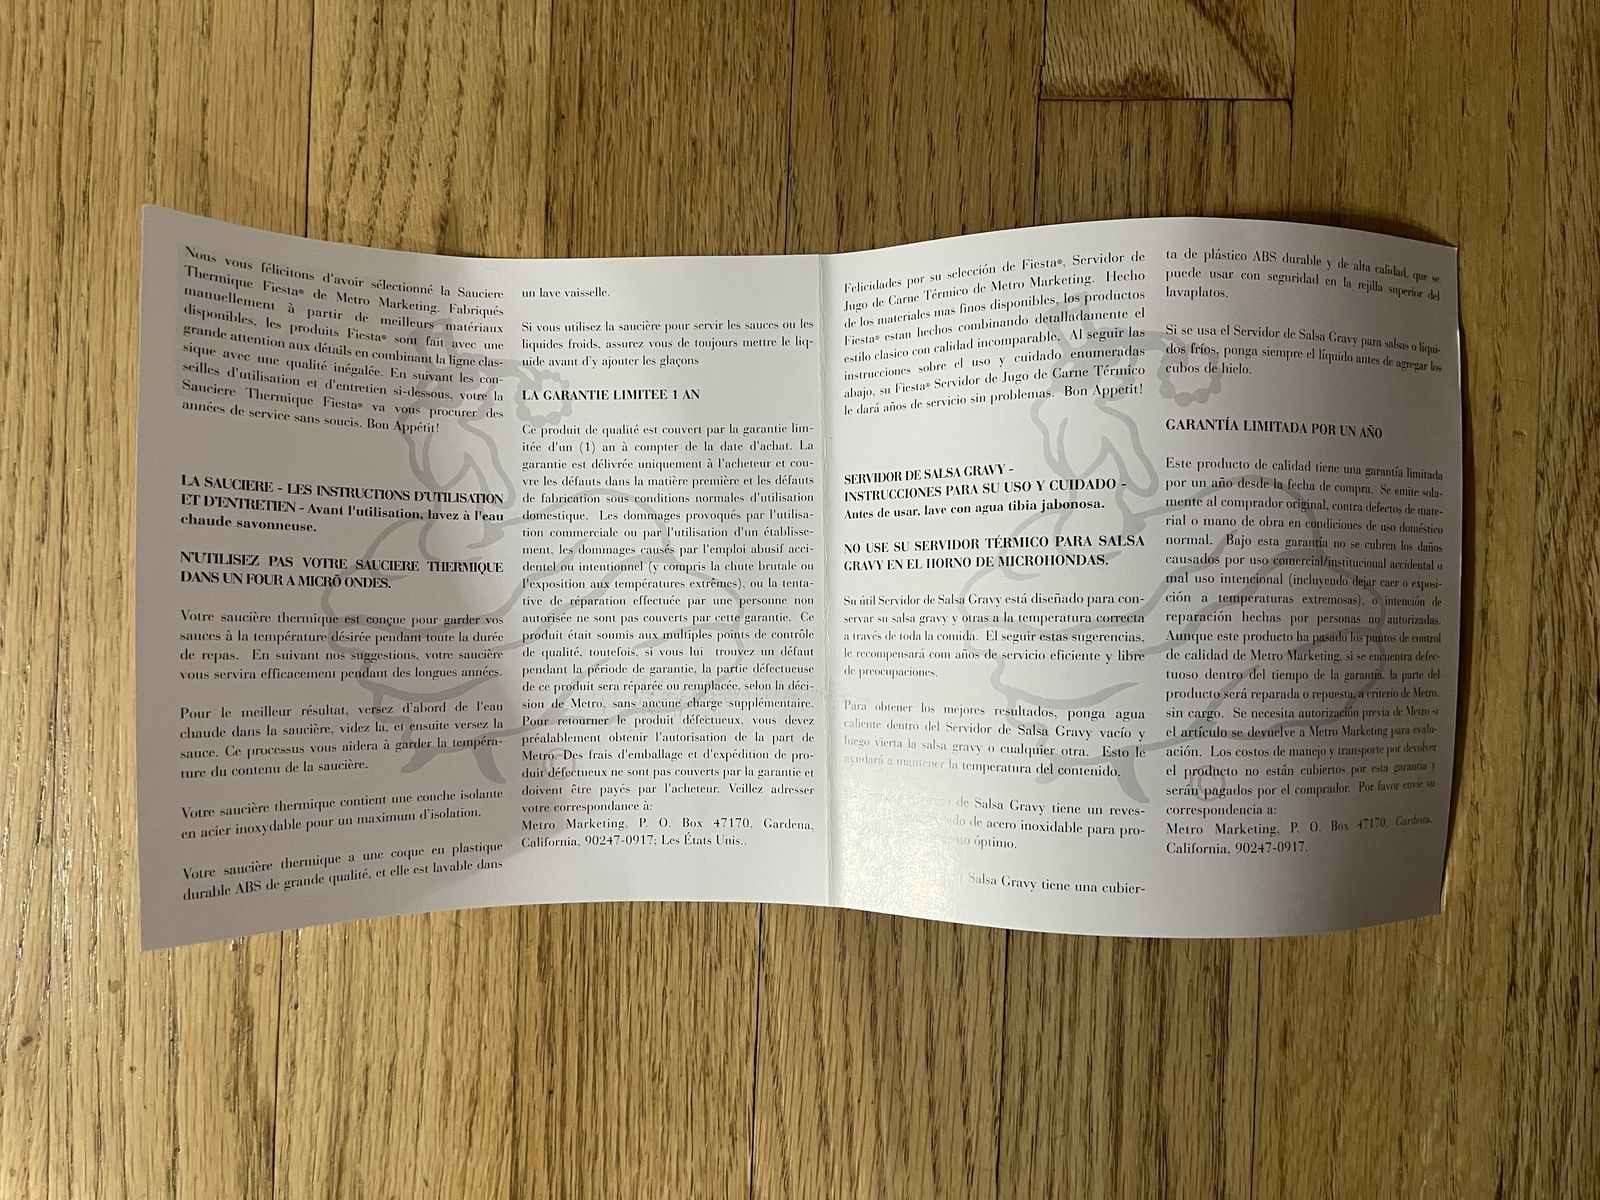 Nous vous félicitons d'avoir sélectionné la Sauciere
Thermique Fiesta® de Metro Marketing. Fabriqués
manuellement à partir de meilleurs matériaux
disponibles, les produits Fiesta® sont fait avec une
grande attention aux détails en combinant la ligne clas-
sique avec une qualité inégalée. En suivant les con-
seilles d'utilisation et d'entretien si-dessous, votre la
Sauciere Thermique Fiesta® va vous procurer des
années de service sans soucis. Bon Appétit!
LA SAUCIERE - LES INSTRUCTIONS D'UTILISATION
ET D'ENTRETIEN - Avant l'utilisation, lavez à l'eau
chaude savonneuse.
N'UTILISEZ PAS VOTRE SAUCIERE THERMIQUE
DANS UN FOUR A MICRŌ ONDES.
Votre saucière thermique est conçue pour garder vos
sauces à la température désirée pendant toute la durée
de repas. En suivant nos suggestions, votre saucière
vous servira efficacement pendant des longues années.
Pour le meilleur résultat, versez d'abord de l'eau
chaude dans la saucière, videz la, et ensuite versez la
sauce. Ce processus vous aidera à garder la tempéra-
ture du contenu de la saucière.
Votre saucière thermique contient une couche isolante
en acier inoxydable pour un maximum d'isolation.
Votre saucière thermique a une coque en plastique
durable ABS de grande qualité, et elle est lavable dans
un lave vaisselle.
Si vous utilisez la saucière pour servir les sauces ou les
liquides froids, assurez vous de toujours mettre le liq-
uide avant d'y ajouter les glaçons
LA GARANTIE LIMITEE 1 AN
Ce produit de qualité est couvert par la garantie lim-
itée d'un (1) an à compter de la date d'achat. La
garantie est délivrée uniquement à l'acheteur et cou-
vre les défauts dans la matière première et les défauts
de fabrication sous conditions normales d'utilisation
domestique. Les dommages provoqués par l'utilisa-
tion commerciale ou par l'utilisation d'un établisse-
ment, les dommages causés par l'emploi abusif acci-
dentel ou intentionnel (y compris la chute brutale ou
l'exposition aux températures extrêmes), ou la tenta-
tive de réparation effectuée par une personne non
autorisée ne sont pas couverts par cette garantie. Ce
produit était soumis aux multiples points de contrôle
de qualité, toutefois, si vous lui trouvez un défaut
pendant la période de garantie, la partie défectueuse
de ce produit sera réparée ou remplacée, selon la déci-
sion de Metro, sans aucune charge supplémentaire.
Pour retourner le produit défectueux, vous devez
préalablement obtenir l'autorisation de la part de
Metro. Des frais d'emballage et d'expédition de pro-
duit défectueux ne sont pas couverts par la garantie et
doivent être payés par l'acheteur. Veillez adresser
votre correspondance à:
Metro Marketing, P. O. Box 47170, Gardena,
California, 90247-0917; Les États Unis..
Felicidades por su selección de Fiesta®, Servidor de
Jugo de Carne Térmico de Metro Marketing. Hecho
de los materiales mas finos disponibles, los productos
Fiesta® estan hechos combinando detalladamente el
estilo clasico con calidad incomparable. Al seguir las
instrucciones sobre el uso y cuidado enumeradas
abajo, su Fiesta® Servidor de Jugo de Carne Térmico
le dará años de servicio sin problemas. Bon Appetit!
SERVIDOR DE SALSA GRAVY -
INSTRUCCIONES PARA SU USO Y CUIDADO -
Antes de usar, lave con agua tibia jabonosa.
NO USE SU SERVIDOR TÉRMICO PARA SALSA
GRAVY EN EL HORNO DE MICROHONDAS.
Su útil Servidor de Salsa Gravy está diseñado para con-
servar su salsa gravy y otras a la temperatura correcta
a través de toda la comida. El seguir estas sugerencias,
le recompensará com años de servicio eficiente y libre
de preocupaciones.
Para obtener los mejores resultados, ponga agua
caliente dentro del Servidor de Salsa Gravy vacío y
luego vierta la salsa gravy o cualquier otra. Esto le
ayudará a mantener la temperatura del contenido.
de Salsa Gravy tiene un reves-
de acero inoxidable para pro-
óptimo.
Salsa Gravy tiene una cubier-
ta de plástico ABS durable y de alta calidad, que se
puede usar con seguridad en la rejilla superior del
lavaplatos.
Si se usa el Servidor de Salsa Gravy para salsas o líqui-
dos fríos, ponga siempre el líquido antes de agregar los
cubos de hielo.
GARANTÍA LIMITADA POR UN AÑO
Este producto de calidad tiene una garantía limitada
por un año desde la fecha de compra. Se emite sola-
mente al comprador original, contra defectos de mate-
rial o mano de obra en condiciones de uso doméstico
normal. Bajo esta garantía no se cubren los daños
causados por uso comercial/institucional accidental o
mal uso intencional (incluyendo dejar caer o exposi-
ción a temperaturas extremosas), o intención de
reparación hechas por personas no autorizadas.
Aunque este producto ha pasado los puntos de control
de calidad de Metro Marketing, si se encuentra defec-
tuoso dentro del tiempo de la garantía, la parte del
producto será reparada o repuesta, a criterio de Metro,
sin cargo. Se necesita autorización previa de Metro si
el artículo se devuelve a Metro Marketing para evalu-
ación. Los costos de manejo y transporte por devolver
el producto no están cubiertos por esta garantía y
serán pagados por el comprador. Por favor envíe su
correspondencia a:
Metro Marketing, P. O. Box 47170, Gardena,
California, 90247-0917.